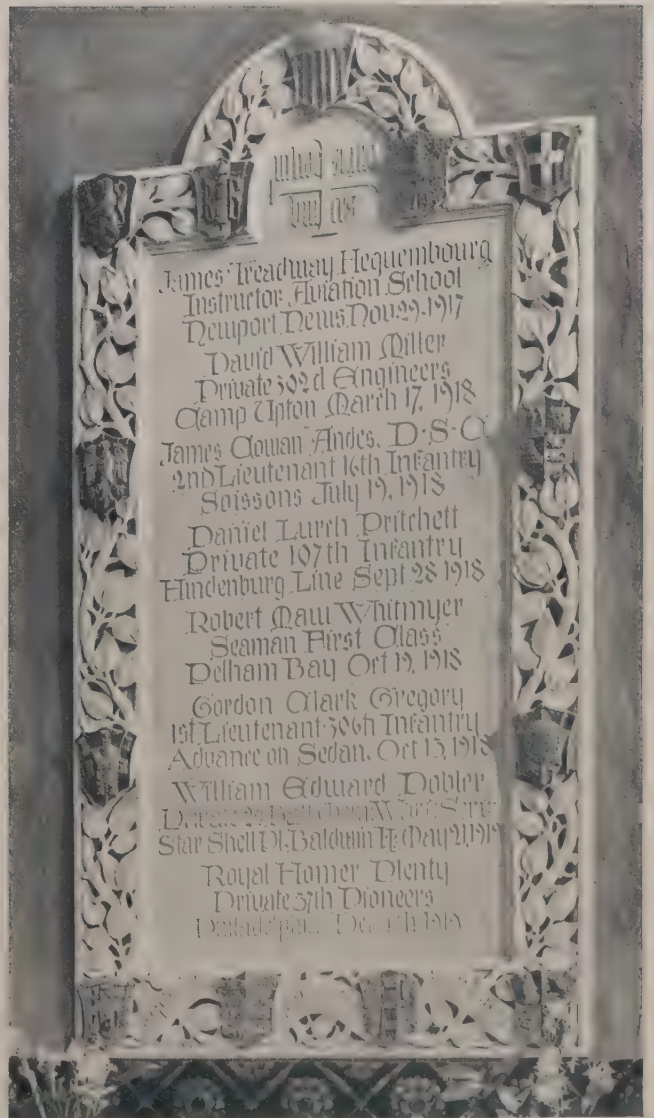 James Treadway Hequembourg
Instructor Aviation School
Newport News Nov. 29. 1917
David William Miller
Private 302d Engineers
Camp Upton March 17, 1918
James Cowan Andes. D·S·C
2nd Lieutenant 16th Infantry
Soissons July 19, 1918
Daniel Lurch Pritchett
Private 107th Infantry
Hindenburg Line Sept 28 1918
Robert Maw Whitmyer
Seaman First Class
Pelham Bay Oct 19, 1918
Gordon Clark Gregory
1st Lieutenant 306th Infantry
Advance on Sedan. Oct 15, 1918
William Edward Dobler
Star Shell Baldwin May 21, 1919
Royal Homer Plenty
Private 57th Pioneers
1919